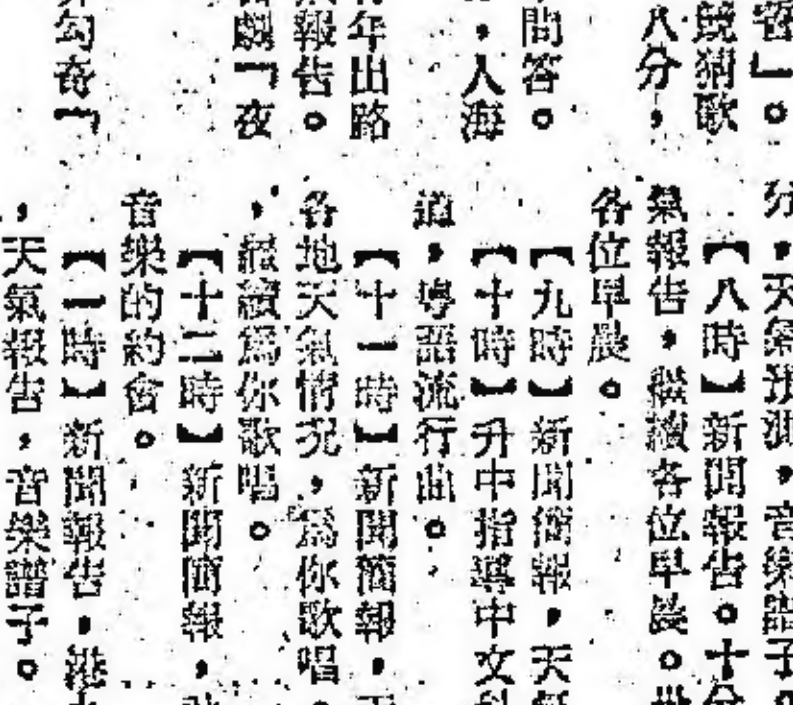 客」。
競猜歌
八分，
問答。
，人海
年出路
報告。
劇「夜
勾奇「
分，天氣預測，音樂譜子。
【八時】新聞報告。十分
氣報告，繼續各位早晨。
各位早晨。
【九時】新聞簡報，天氣
【十時】升中指導中文科
道，粵語流行曲。
【十一時】新聞簡報，天
各地天氣情況，爲你歌唱。
，繼續爲你歌唱。
【十二時】新聞簡報，
音樂的約會。
【一時】新聞報告，港
，天氣報告，音樂譜子。